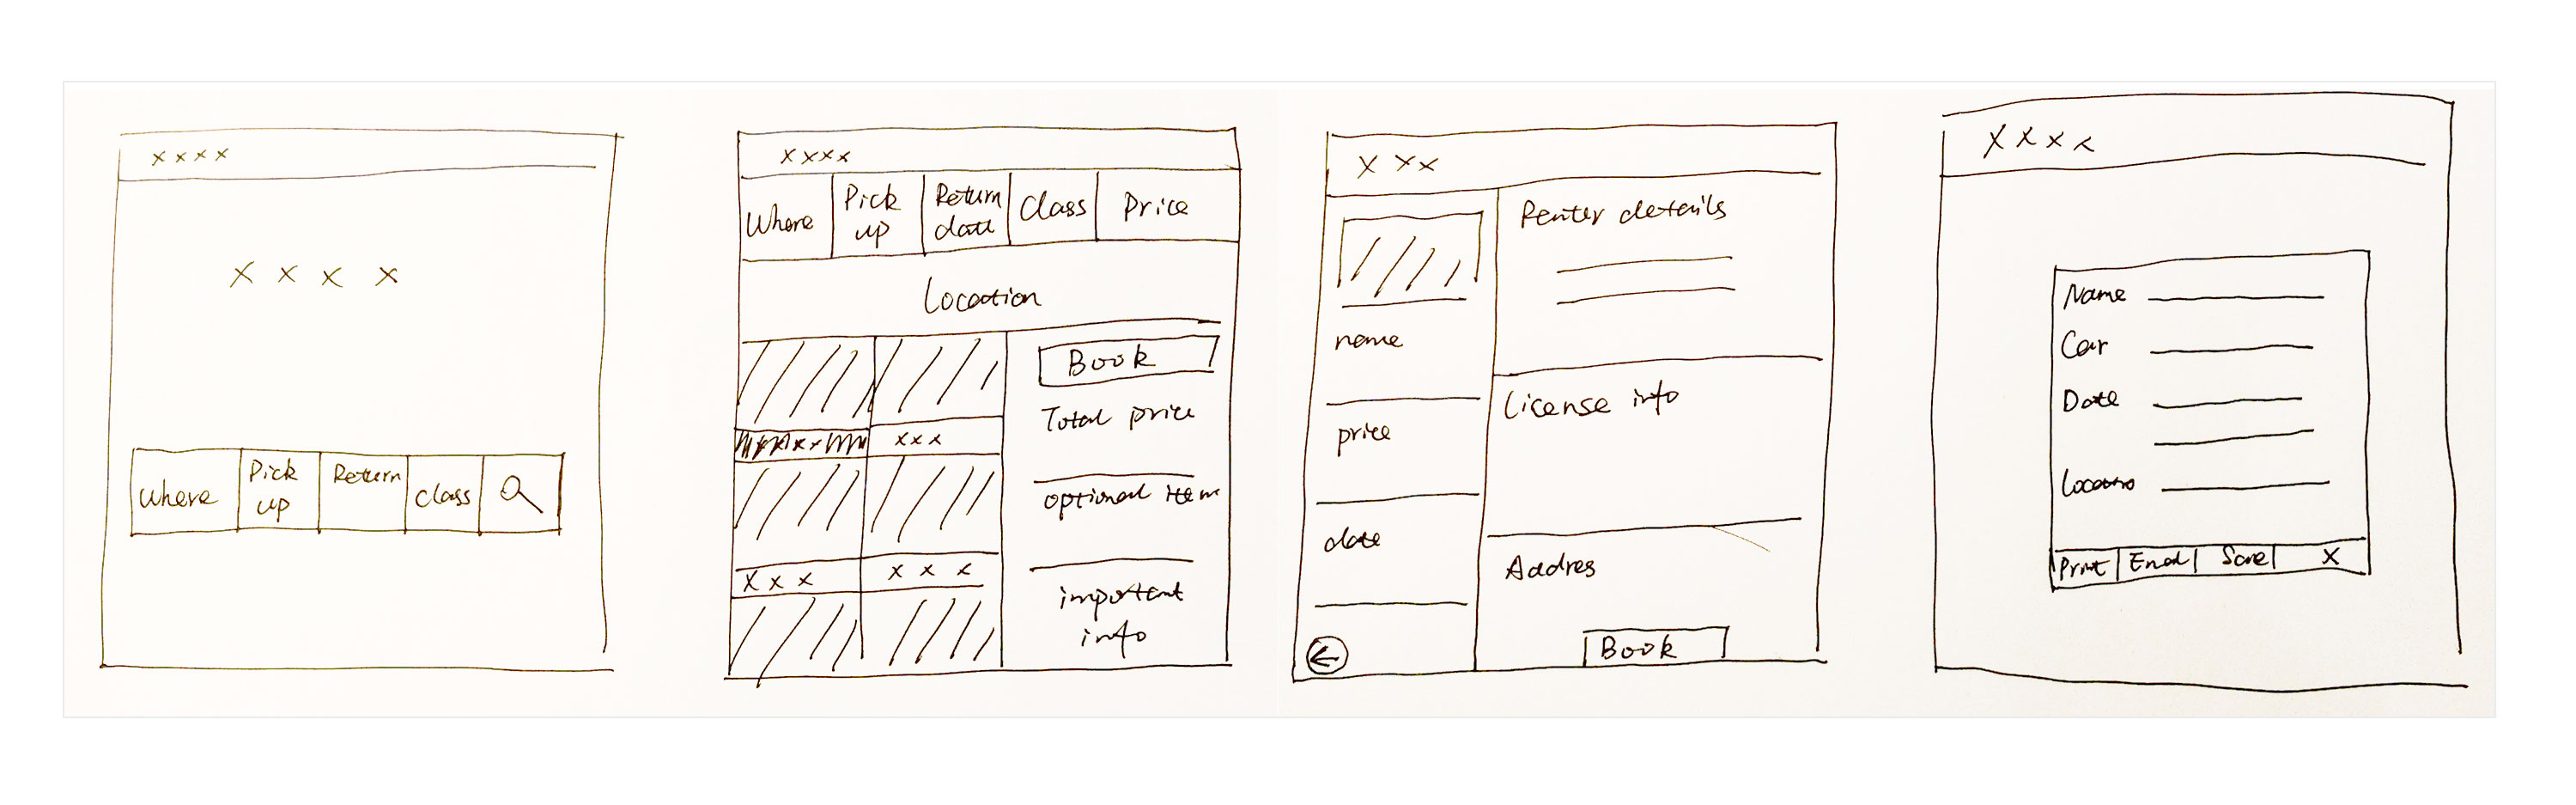 x x x x
x x x x
Where
Pick
up
Return
Class
x x x x
Where
Pick
up
Return
date
Class
Price
Location
Book
Total price
x x x
optional item
x x x
x x x
important
info
x x x
Renter details
name
License info
price
date
Addres
Book
x x x x
Name
Car
Date
Print
X